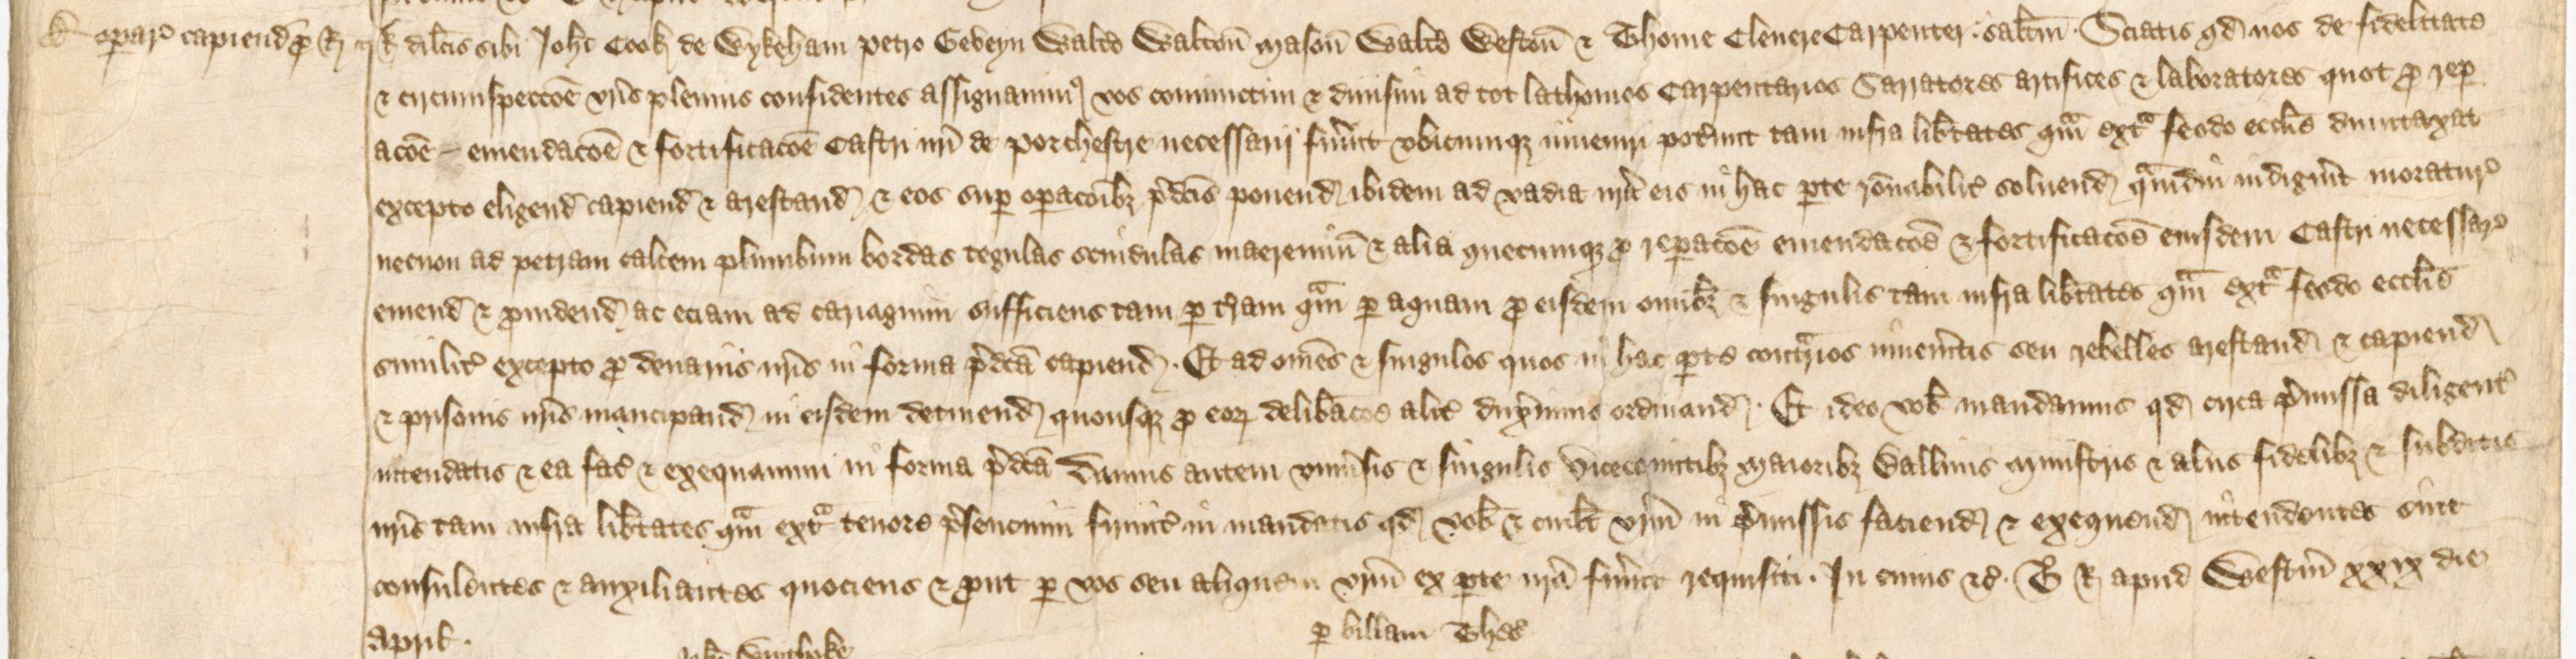 De opar' capiend' p R
R dilcis sibi Johi Cook de Wykeham Petro Gebeyn Walto Walton Mason Walto Weston & Thome Clenere Carpenter saltm. Sciatis qd nos de fidelitate
& circumspeccoe vris plenius confidentes assignavim' vos coniunctim & divisim ad tot lathomos carpentarios sarratores artifices & laboratores quot p rep
acoe emendacoe & fortificacoe Castri nri de Porchestre necessarij fuint vbicumq inveniri potint tam infra libtates qm extra feodo ecclie dumtaxat
excepto eligend capiend & arestand & eos sup opacoibz pdcis ponend ibidem ad vadia nra eis in hac pte ronabilit solvend qmdiu indiguit moratur'
necnon ad petram calcem plumbum bordas tegulas scindulas maeremiu & alia quecumq p repacoe emendacoe & fortificacoe eiusdem Castri necessar'
emend & pvidend ac eciam ad cariagium sufficiens tam p tram qm p aquam p eisdem omibz & singulis tam infra libtates qm extra feodo ecclie
similit excepto p denariis nris in forma pdca capiend. Et ad omes & singulos quos in hac pte contrios invenitis seu rebelles arestand & capiend
& prisonis nris mancipand in eisdem detinend quousq p eor delibacoe alit duximus ordinand. Et ideo vob mandamus qd circa pmissa diligent'
intendatis & ea fac' & exequamini in forma pdca Damus autem univsis & singulis vicecomitibz maioribz ballivis ministris & aliis fidelibz & subditis
nris tam infra libtates qm extra tenore psencium firmit in mandatis qd vob & cuilt vrm in pmissis faciend & exequend intendentes sint
consulentes & auxiliantes quociens & put p vos seu aliquem vrm ex pte nra fuint requisiti. In cuius &c. T R apud Westm xxix die
April.
p billam Thes'